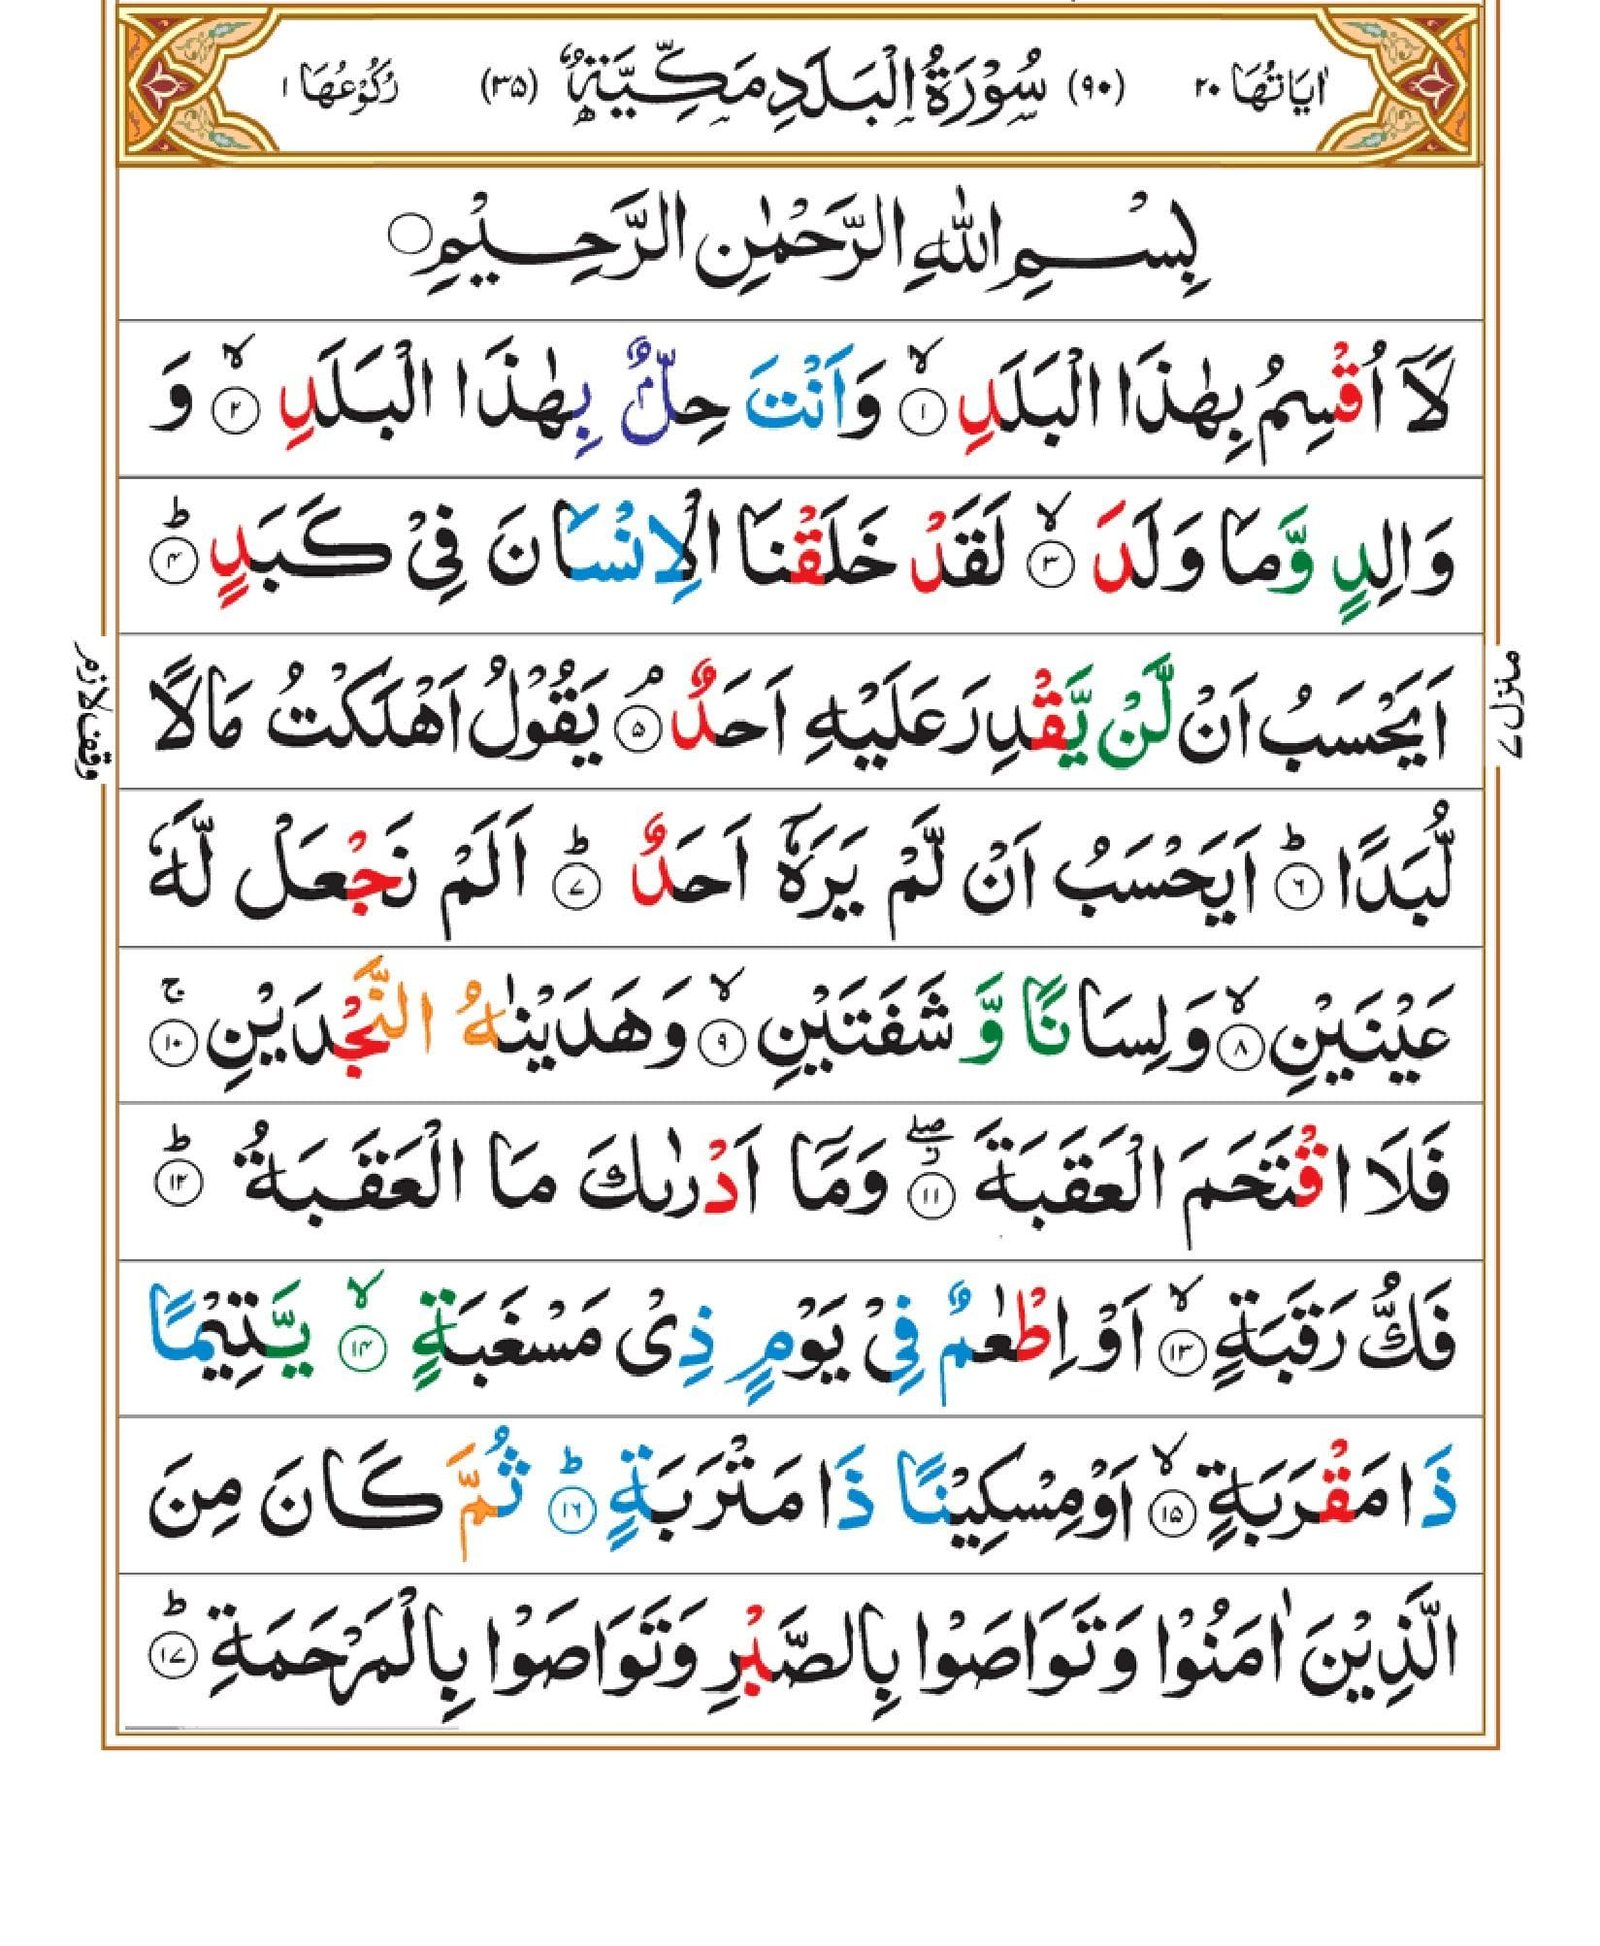 اٰیَاتُهَا ٢٠ (٩٠) سُوْرَةُ الْبَلَدِ مَكِّيَّةٌ (٣٥) رُكُوْعُهَا ١
بِسْمِ اللّٰهِ الرَّحْمٰنِ الرَّحِيْمِ ○
لَاۤ اُقْسِمُ بِهٰذَا الْبَلَدِ ۙ‏﴿۱﴾ وَاَنْتَ حِلٌّۢ بِهٰذَا الْبَلَدِ ۙ‏﴿۲﴾ وَ
وَالِدٍ وَّمَا وَلَدَ ۙ‏﴿۳﴾ لَقَدْ خَلَقْنَا الْاِنْسَانَ فِىْ كَبَدٍ ؕ‏﴿۴﴾
اَيَحْسَبُ اَنْ لَّنْ يَّقْدِرَ عَلَيْهِ اَحَدٌ ۘ‏﴿۵﴾ يَقُوْلُ اَهْلَكْتُ مَالًا
لُّبَدًا ؕ‏﴿۶﴾ اَيَحْسَبُ اَنْ لَّمْ يَرَهٗۤ اَحَدٌ ؕ‏﴿۷﴾ اَلَمْ نَجْعَلْ لَّهٗ
عَيْنَيْنِ ۙ‏﴿۸﴾ وَلِسَانًا وَّ شَفَتَيْنِ ۙ‏﴿۹﴾ وَهَدَيْنٰهُ النَّجْدَيْنِ ۚ‏﴿۱۰﴾
فَلَا اقْتَحَمَ الْعَقَبَةَ ۖ‏﴿۱۱﴾ وَمَاۤ اَدْرٰىكَ مَا الْعَقَبَةُ ؕ‏﴿۱۲﴾
فَكُّ رَقَبَةٍ ۙ‏﴿۱۳﴾ اَوْ اِطْعٰمٌ فِىْ يَوْمٍ ذِىْ مَسْغَبَةٍ ۙ‏﴿۱۴﴾ يَّتِيْمًا
ذَا مَقْرَبَةٍ ۙ‏﴿۱۵﴾ اَوْ مِسْكِيْنًا ذَا مَتْرَبَةٍ ؕ‏﴿۱۶﴾ ثُمَّ كَانَ مِنَ
الَّذِيْنَ اٰمَنُوْا وَتَوَاصَوْا بِالصَّبْرِ وَتَوَاصَوْا بِالْمَرْحَمَةِ ؕ‏﴿۱۷﴾
منزل ٧
وقف لازم